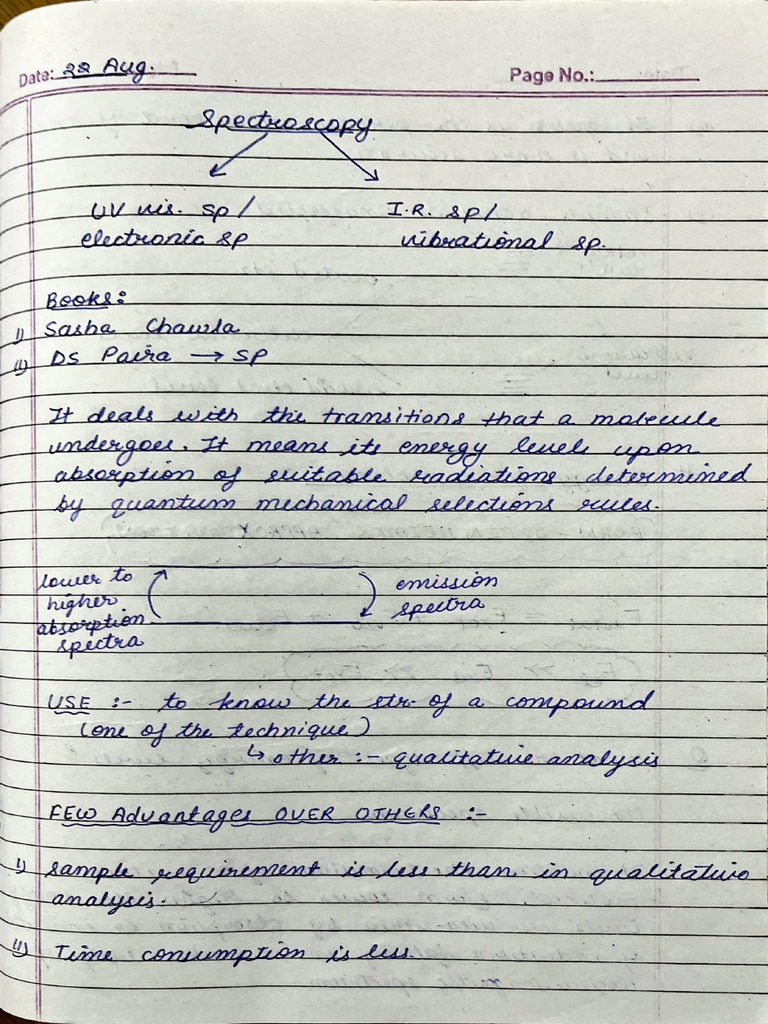 Date: 22 Aug.
Page No.:
Spectroscopy
UV vis. sp/ I.R. sp/
electronic sp vibrational sp.
Books:
i) Sasha Chawla
ii) DS Paira → SP
It deals with the transitions that a molecule
undergoes. It means its energy levels upon
absorption of suitable radiations determined
by quantum mechanical selections rules.
lower to
higher
absorption
spectra
emission
spectra
USE :- to know the str. of a compound
(one of the technique)
↳ other :- qualitative analysis
FEW Advantages OVER OTHERS :-
i) sample requirement is less than in qualitative
analysis.
ii) Time consumption is less.